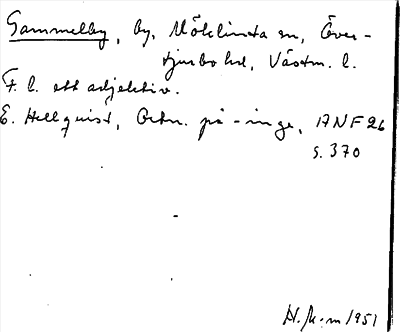 Gammelby, by, Möklinta sn, Över-
tjurbo hd, Västm. l.
F. l. ett adjektiv.
E. Hellquist, Ortn. på -inge, ANF 26
s. 370
H. M-m 1951